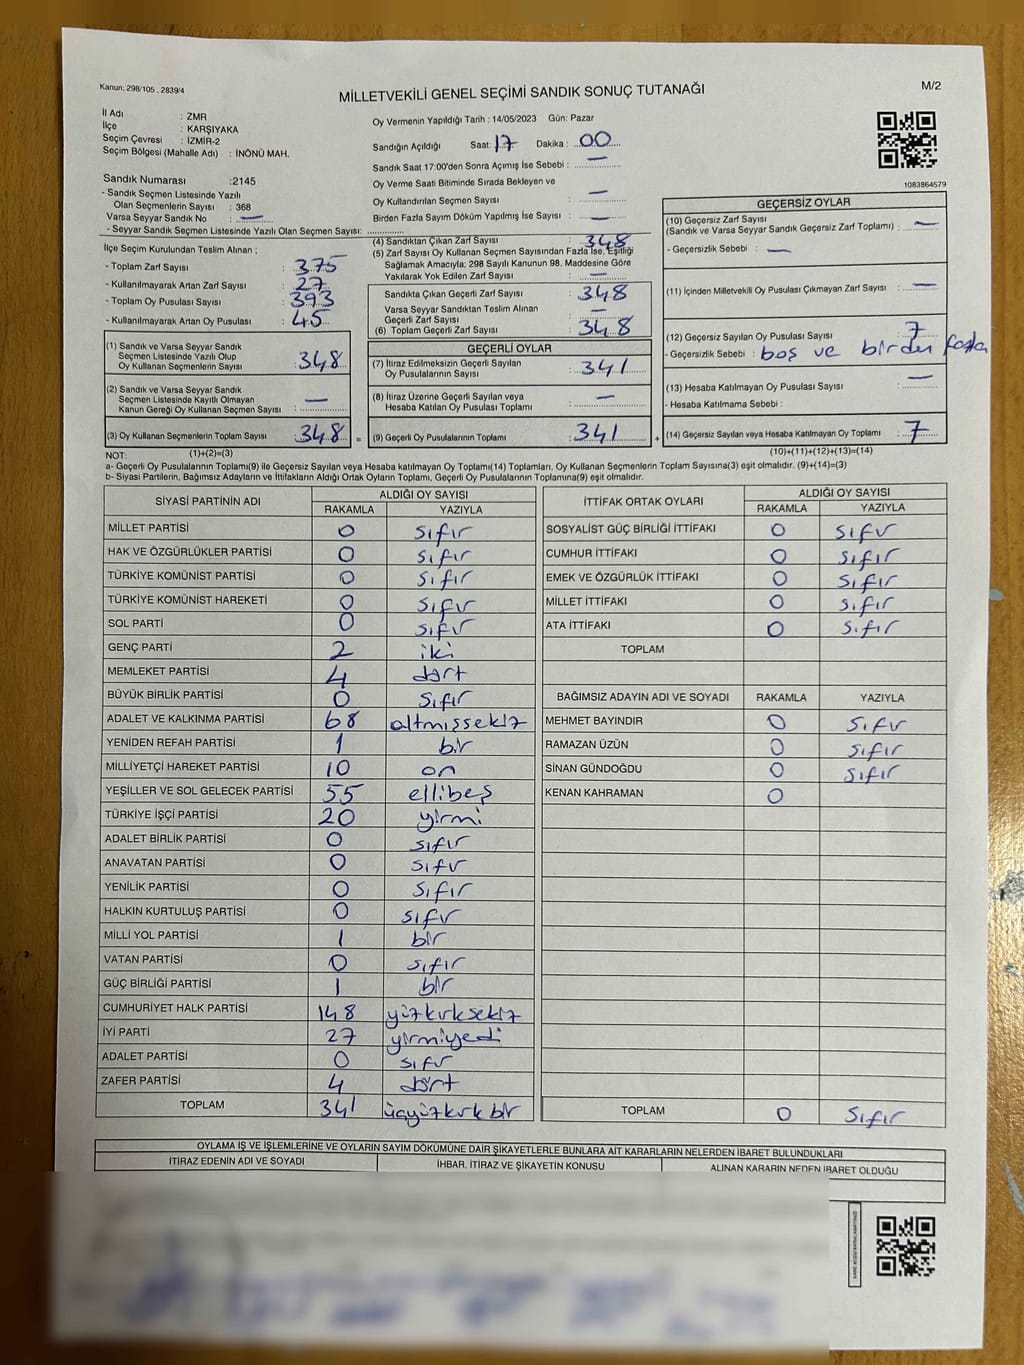 Kanun; 298/105 . 2839/4
MİLLETVEKİLİ GENEL SEÇİMİ SANDIK SONUÇ TUTANAĞI
M/2
İl Adı : ZMR
İlçe : KARŞIYAKA
Seçim Çevresi : İZMİR-2
Seçim Bölgesi (Mahalle Adı) : İNÖNÜ MAH.
Oy Vermenin Yapıldığı Tarih : 14/05/2023 Gün: Pazar
Sandığın Açıldığı Saat: 17 Dakika : 00
Sandık Saat 17:00'den Sonra Açımış İse Sebebi : —
Oy Verme Saati Bitiminde Sırada Bekleyen ve
Oy Kullandırılan Seçmen Sayısı : —
Birden Fazla Sayım Döküm Yapılmış İse Sayısı : —
1083864579
Sandık Numarası :2145
- Sandık Seçmen Listesinde Yazılı
Olan Seçmenlerin Sayısı : 368
Varsa Seyyar Sandık No : —
- Seyyar Sandık Seçmen Listesinde Yazılı Olan Seçmen Sayısı: ............
İlçe Seçim Kurulundan Teslim Alınan ;
- Toplam Zarf Sayısı : 375
- Kullanılmayarak Artan Zarf Sayısı : 27
- Toplam Oy Pusulası Sayısı : 393
- Kullanılmayarak Artan Oy Pusulası : 45
(1) Sandık ve Varsa Seyyar Sandık
Seçmen Listesinde Yazılı Olup
Oy Kullanan Seçmenlerin Sayısı : 348
(2) Sandık ve Varsa Seyyar Sandık
Seçmen Listesinde Kayıtlı Olmayan
Kanun Gereği Oy Kullanan Seçmen Sayısı : —
(3) Oy Kullanan Seçmenlerin Toplam Sayısı : 348
(1)+(2)=(3)
(4) Sandıktan Çıkan Zarf Sayısı : 348
(5) Zarf Sayısı Oy Kullanan Seçmen Sayısından Fazla İse, Eşitliği
Sağlamak Amacıyla; 298 Sayılı Kanunun 98. Maddesine Göre
Yakılarak Yok Edilen Zarf Sayısı : —
Sandıkta Çıkan Geçerli Zarf Sayısı : 348
Varsa Seyyar Sandıktan Teslim Alınan
Geçerli Zarf Sayısı : —
(6) Toplam Geçerli Zarf Sayısı : 348
GEÇERLİ OYLAR
(7) İtiraz Edilmeksizin Geçerli Sayılan
Oy Pusulalarının Sayısı : 341
(8) İtiraz Üzerine Geçerli Sayılan veya
Hesaba Katılan Oy Pusulası Toplamı : —
= (9) Geçerli Oy Pusulalarının Toplamı : 341 +
GEÇERSİZ OYLAR
(10) Geçersiz Zarf Sayısı
(Sandık ve Varsa Seyyar Sandık Geçersiz Zarf Toplamı) : —
- Geçersizlik Sebebi : —
(11) İçinden Milletvekili Oy Pusulası Çıkmayan Zarf Sayısı : —
(12) Geçersiz Sayılan Oy Pusulası Sayısı : 7
- Geçersizlik Sebebi : boş ve birden fazla
(13) Hesaba Katılmayan Oy Pusulası Sayısı : —
- Hesaba Katılmama Sebebi :
(14) Geçersiz Sayılan veya Hesaba Katılmayan Oy Toplamı : 7
(10)+(11)+(12)+(13)=(14)
NOT:
a- Geçerli Oy Pusulalarının Toplamı(9) ile Geçersiz Sayılan veya Hesaba katılmayan Oy Toplamı(14) Toplamları, Oy Kullanan Seçmenlerin Toplam Sayısına(3) eşit olmalıdır. (9)+(14)=(3)
b- Siyasi Partilerin, Bağımsız Adayların ve İttifakların Aldığı Ortak Oyların Toplamı, Geçerli Oy Pusulalarının Toplamına(9) eşit olmalıdır.
SİYASİ PARTİNİN ADI ALDIĞI OY SAYISI
RAKAMLA YAZIYLA
MİLLET PARTİSİ 0 sıfır
HAK VE ÖZGÜRLÜKLER PARTİSİ 0 sıfır
TÜRKİYE KOMÜNİST PARTİSİ 0 sıfır
TÜRKİYE KOMÜNİST HAREKETİ 0 sıfır
SOL PARTİ 0 sıfır
GENÇ PARTİ 2 iki
MEMLEKET PARTİSİ 4 dört
BÜYÜK BİRLİK PARTİSİ 0 sıfır
ADALET VE KALKINMA PARTİSİ 68 altmışsekiz
YENİDEN REFAH PARTİSİ 1 bir
MİLLİYETÇİ HAREKET PARTİSİ 10 on
YEŞİLLER VE SOL GELECEK PARTİSİ 55 ellibeş
TÜRKİYE İŞÇİ PARTİSİ 20 yirmi
ADALET BİRLİK PARTİSİ 0 sıfır
ANAVATAN PARTİSİ 0 sıfır
YENİLİK PARTİSİ 0 sıfır
HALKIN KURTULUŞ PARTİSİ 0 sıfır
MİLLİ YOL PARTİSİ 1 bir
VATAN PARTİSİ 0 sıfır
GÜÇ BİRLİĞİ PARTİSİ 1 bir
CUMHURİYET HALK PARTİSİ 148 yüzkırksekiz
İYİ PARTİ 27 yirmiyedi
ADALET PARTİSİ 0 sıfır
ZAFER PARTİSİ 4 dört
TOPLAM 341 üçyüzkırkbir
İTTİFAK ORTAK OYLARI ALDIĞI OY SAYISI
RAKAMLA YAZIYLA
SOSYALİST GÜÇ BİRLİĞİ İTTİFAKI 0 sıfır
CUMHUR İTTİFAKI 0 sıfır
EMEK VE ÖZGÜRLÜK İTTİFAKI 0 sıfır
MİLLET İTTİFAKI 0 sıfır
ATA İTTİFAKI 0 sıfır
TOPLAM
BAĞIMSIZ ADAYIN ADI VE SOYADI RAKAMLA YAZIYLA
MEHMET BAYINDIR 0 sıfır
RAMAZAN ÜZÜN 0 sıfır
SİNAN GÜNDOĞDU 0 sıfır
KENAN KAHRAMAN 0
TOPLAM 0 sıfır
OYLAMA İŞ VE İŞLEMLERİNE VE OYLARIN SAYIM DÖKÜMÜNE DAİR ŞİKAYETLERLE BUNLARA AİT KARARLARIN NELERDEN İBARET BULUNDUKLARI
İTİRAZ EDENİN ADI VE SOYADI İHBAR, İTİRAZ VE ŞİKAYETİN KONUSU ALINAN KARARIN NEDEN İBARET OLDUĞU